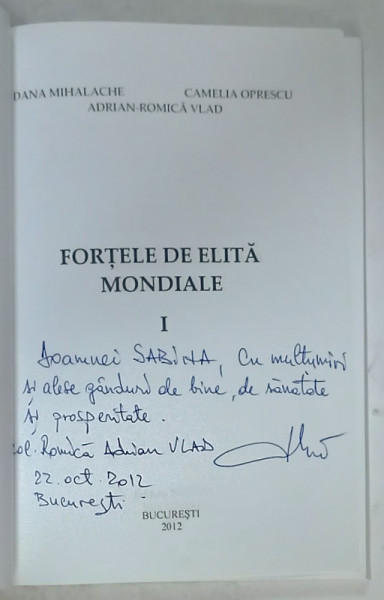 DANA MIHALACHE CAMELIA OPRESCU
ADRIAN-ROMICĂ VLAD
FORȚELE DE ELITĂ
MONDIALE
I
Doamnei SABINA, Cu mulțumiri
și alese gânduri de bine, de sănătate
și prosperitate.
col. Romică Adrian VLAD
22. oct. 2012
București
BUCUREȘTI
2012